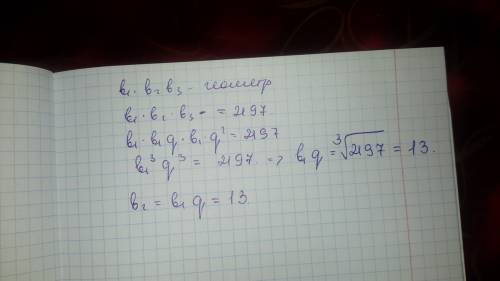 b₁·b₂ b₃ - геометр
b₁·b₂·b₃ = 2197.
b₁·b₁q·b₁q² = 2197
b₁³q³ = 2197 => b₁q = ∛2197 = 13.
b₂ = b₁q = 13